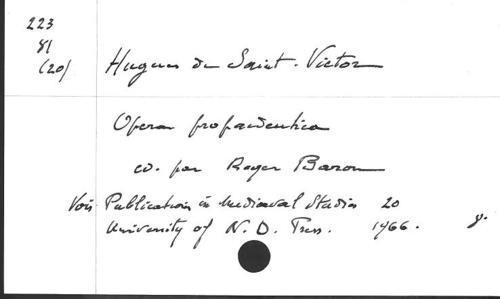 223
81
(20)
Hugues de Saint-Victor
Opera propaedeutica
ed. par Roger Baron
Voir Publications in Mediaeval Studies 20
University of N. D. Press. 1966. 8.